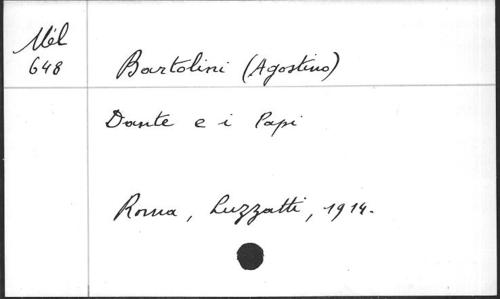 Mél
648
Bartolini (Agostino)
Dante e i Papi
Roma, Luzzatti, 1914.